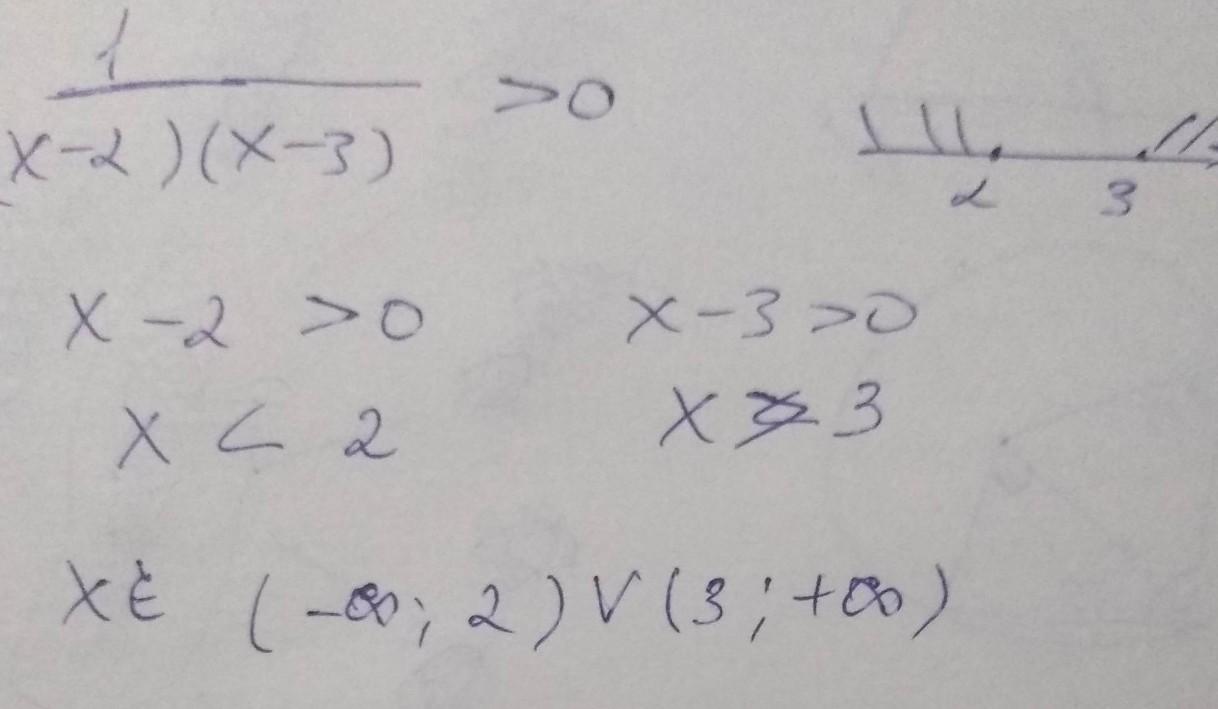 1
x-2)(x-3) >0
2 3
x-2 >0 x-3>0
x < 2 x > 3
x∈ (-∞; 2) V (3; +∞)